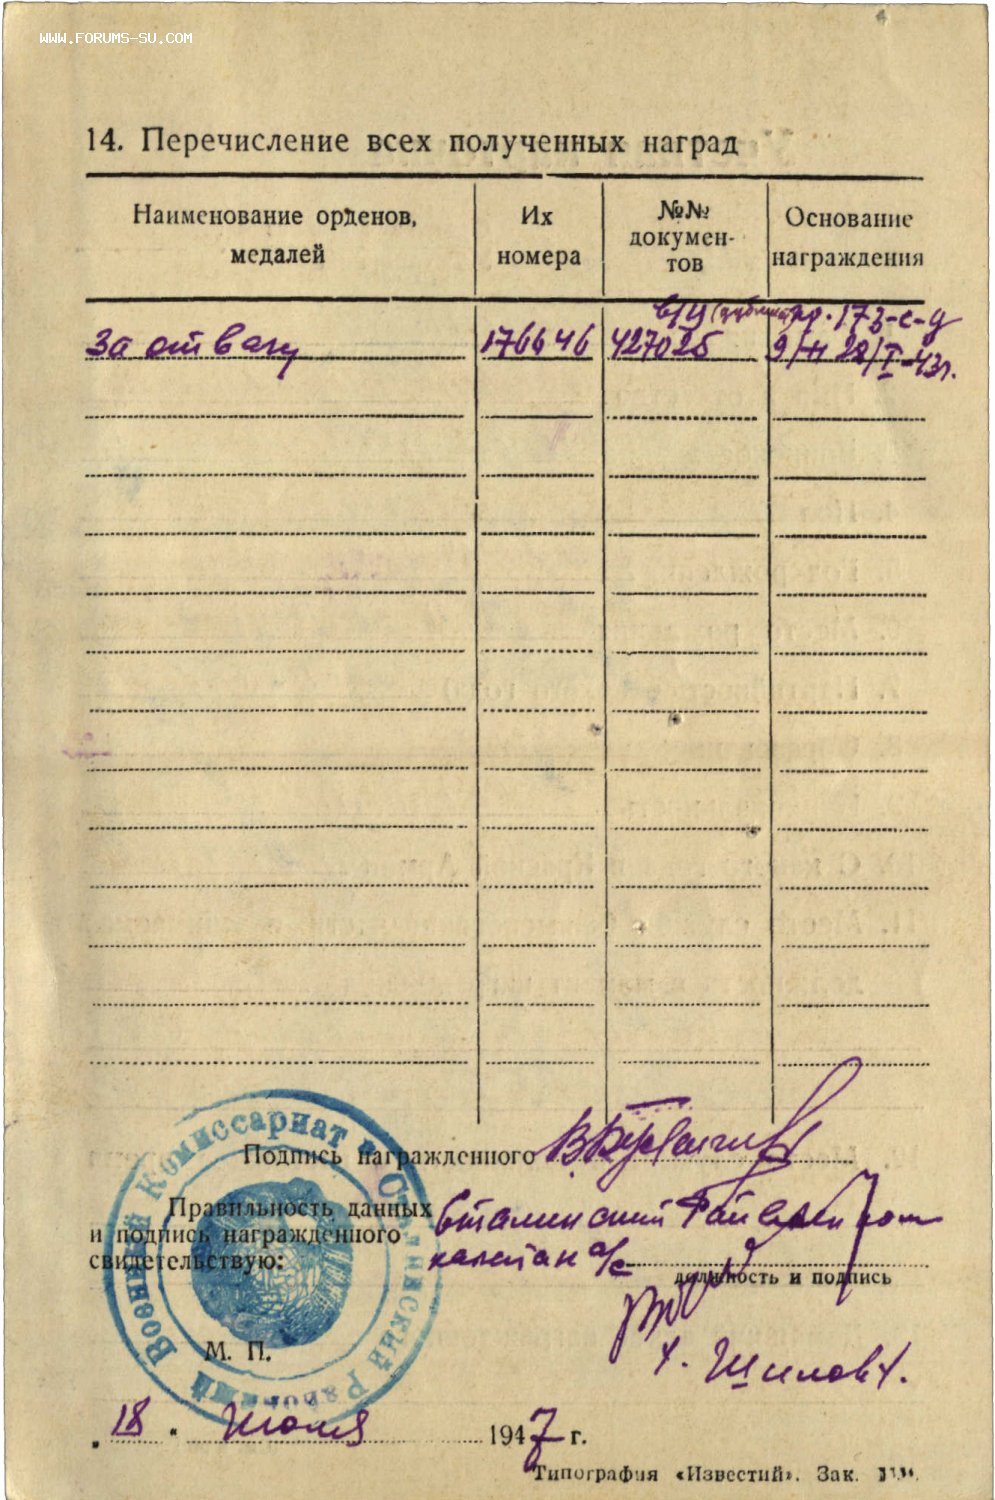 WWW.FORUMS-SU.COM
14. Перечисление всех полученных наград
Наименование орденов, медалей
Их номера
№№ документов
Основание награждения
За отвагу
176646
427026
пр. 173-с-д
28/I-43г.
Подпись награжденного
Правильность данных
и подпись награжденного
свидетельствую:
Сталинский Райвоенком
капитан а/с
должность и подпись
Шилов
М. П.
Военный Комиссариат Сталинский Районный
„18" Июля 1947 г.
Типография «Известий». Зак.